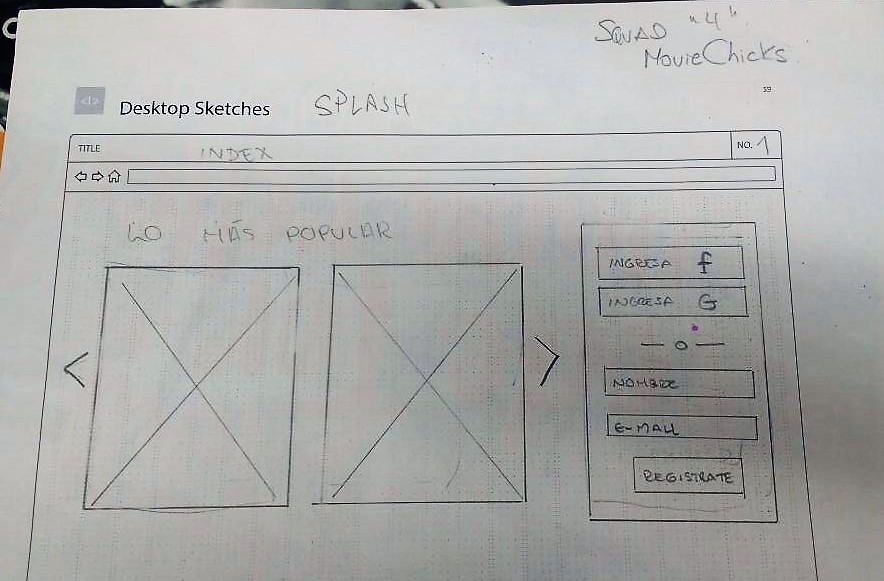 SQUAD "4"
MovieChicks
59
</> Desktop Sketches SPLASH
TITLE INDEX NO. 1
LO MÁS POPULAR
INGRESA f
INGRESA G
— o —
NOMBRE
E-MAIL
REGISTRATE
< >